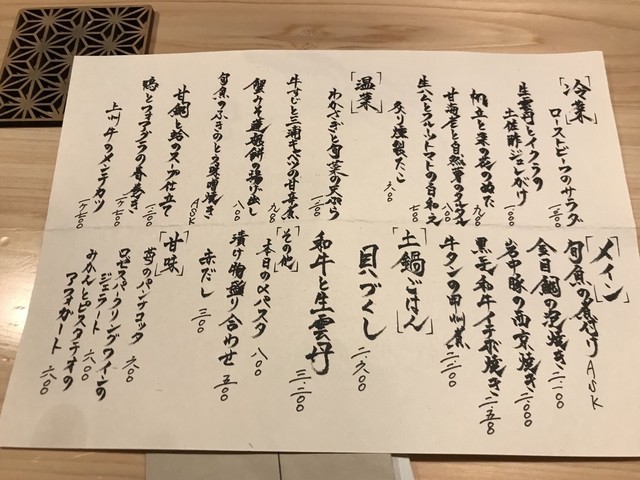 「冷菜」
ローストビーフのサラダ
生雲丹とイクラの
土佐酢ジュレがけ 一.〇〇〇
帆立と菜の花のぬた 九八〇
甘海老と自然薯のタルタル
生ハムとフルーツトマトの白和え 七八〇
炙り燻製たこ 六〇〇
「温菜」
わかさぎと旬菜の天ぷら
牛すじと三浦キャベツの甘辛煮 九八〇
蟹みそ蓮根餅の揚げ出し 八〇〇
旬魚のふきのとう味噌焼き ASK
甘鯛と蛤のスープ仕立て 一.二〇〇
鴨とフォアグラの春巻き 一ケ七〇〇
上州牛のメンチカツ 一ケ七〇〇
「メイン」
旬魚の煮付け ASK
金目鯛の泡焼き 二.一〇〇
岩中豚の西京焼き 二.〇〇〇
黒毛和牛イチボ焼き 二.五八〇
牛タンの田舎煮 二.二〇〇
「土鍋ごはん」
貝づくし 二.六〇〇
和牛と生雲丹 三.二〇〇
「その他」
本日の〆パスタ 八〇〇
漬け物盛り合わせ 五〇〇
赤だし 三〇〇
「甘味」
苺のパンナコッタ 六〇〇
ロゼスパークリングワインの
ジェラート 六〇〇
みかんとピスタチオの
アフォガート 六〇〇